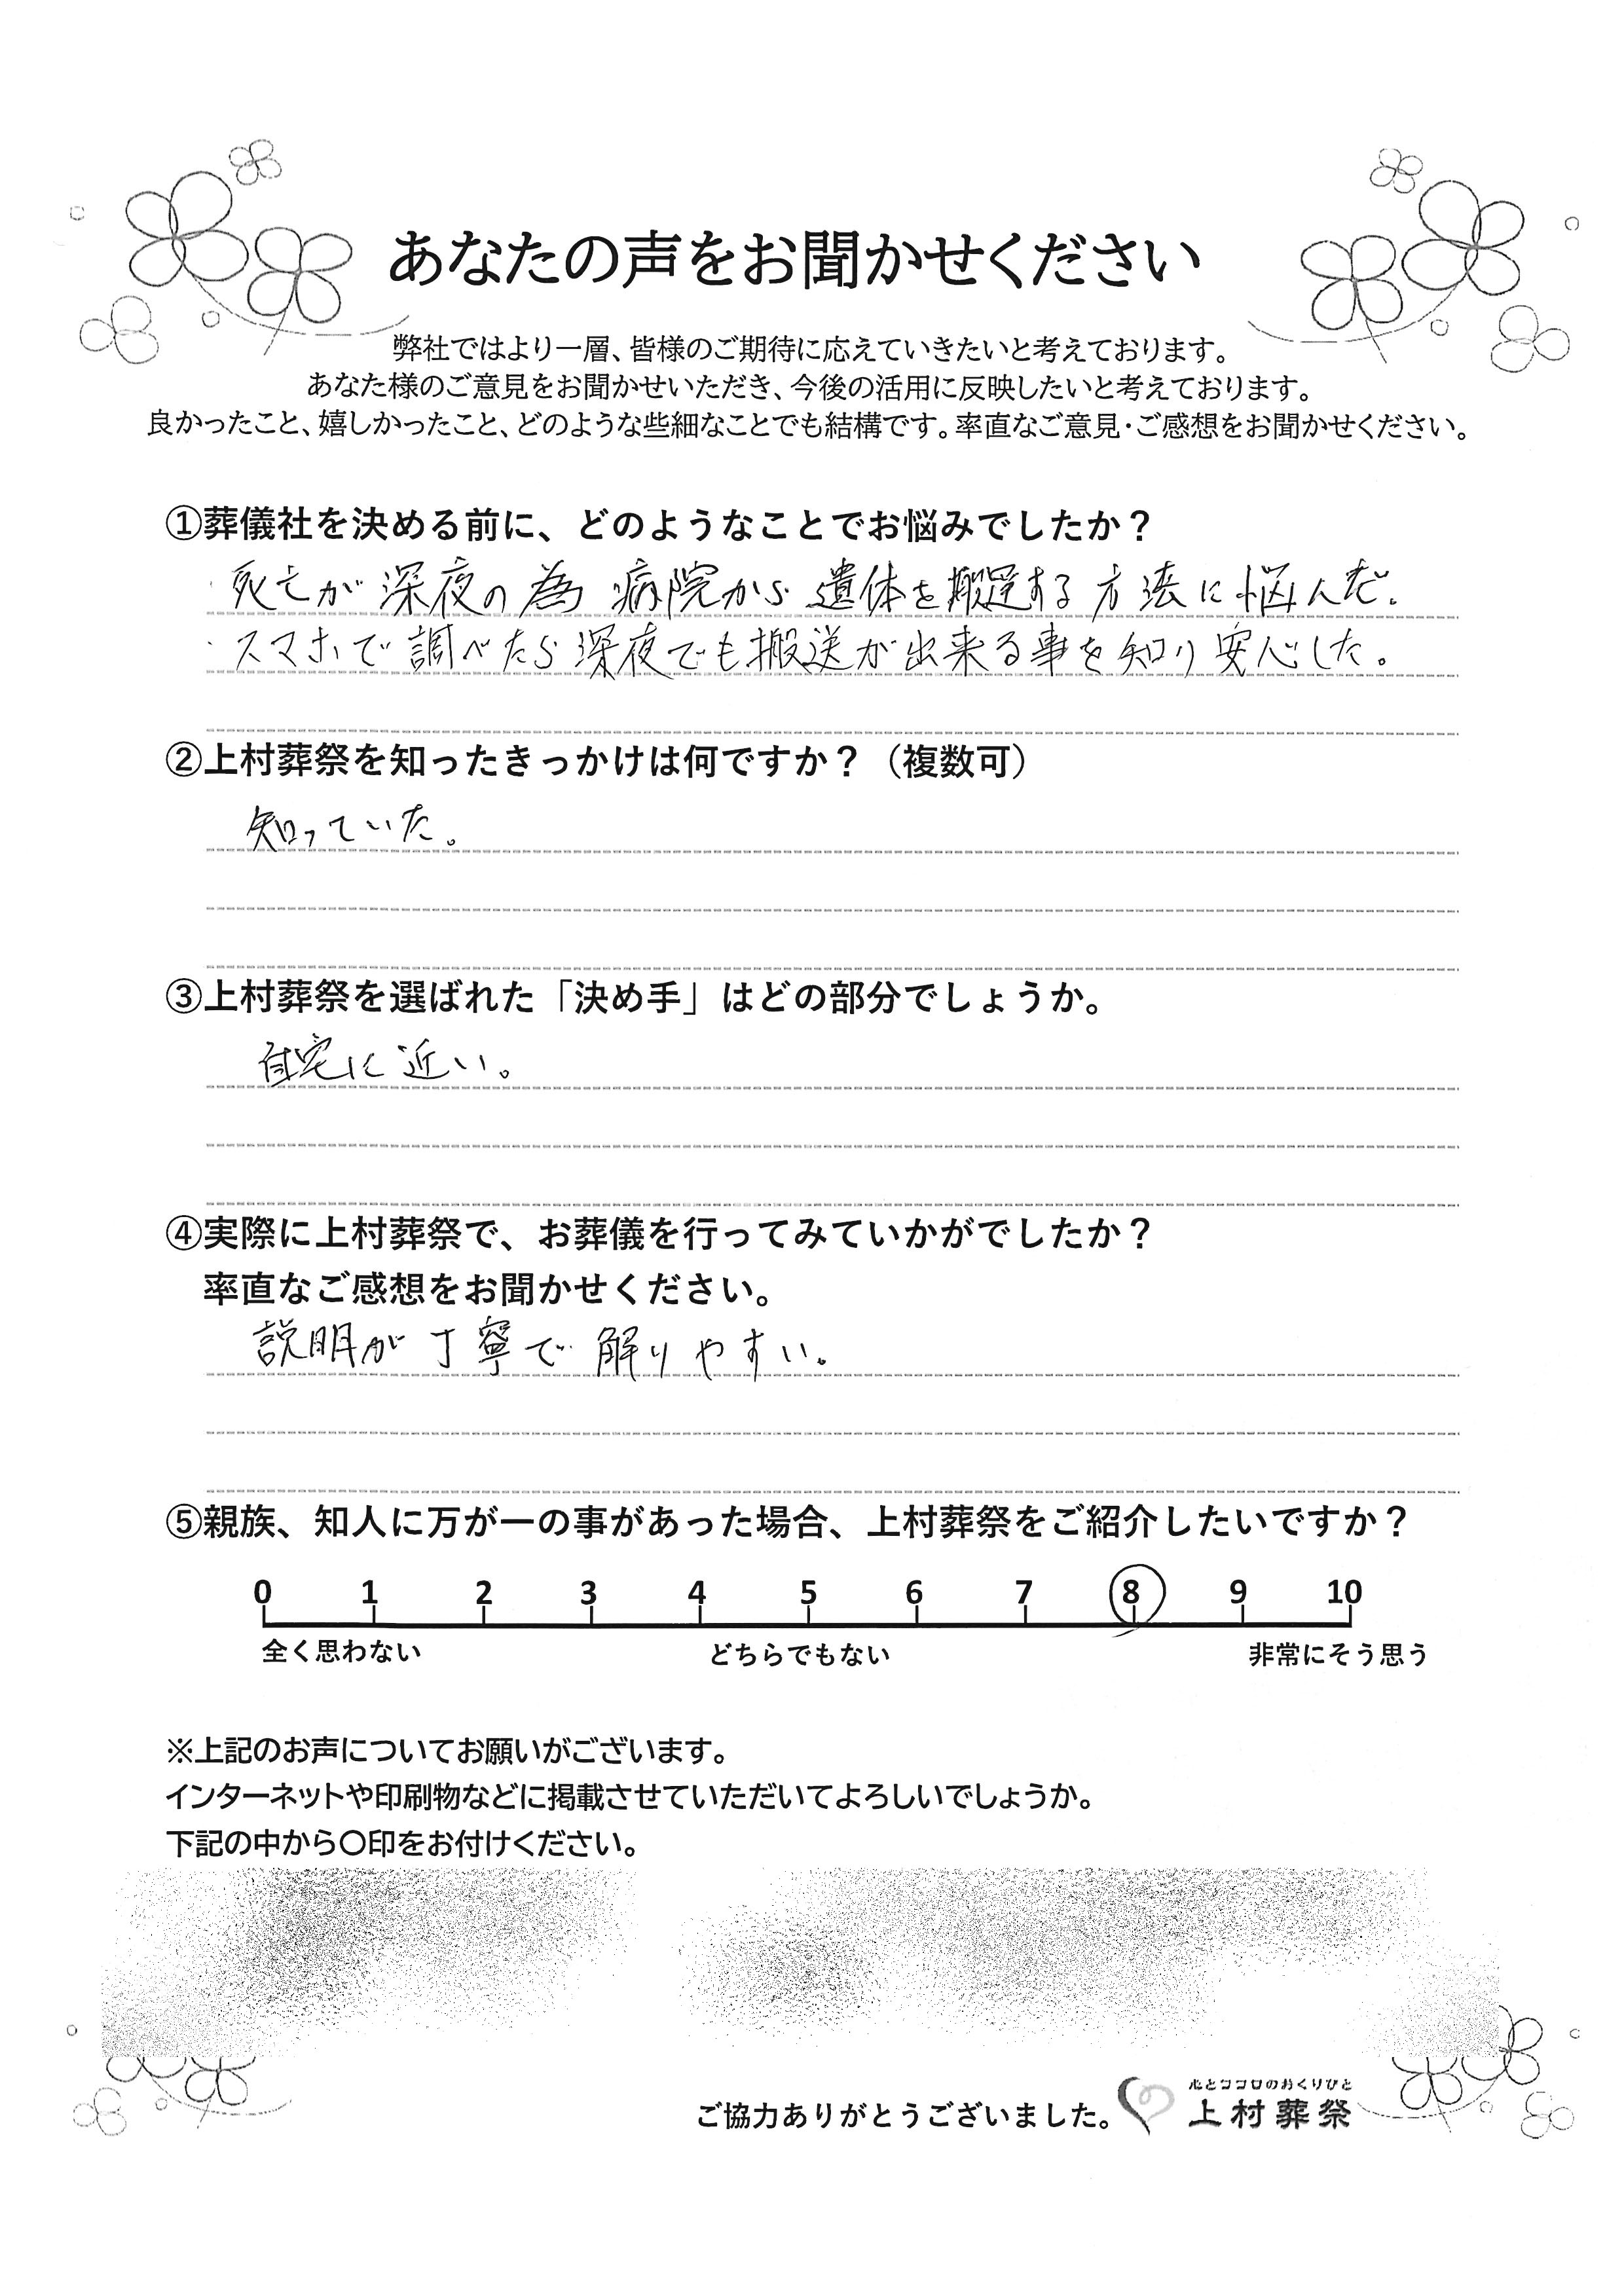 あなたの声をお聞かせください
弊社ではより一層、皆様のご期待に応えていきたいと考えております。
あなた様のご意見をお聞かせいただき、今後の活用に反映したいと考えております。
良かったこと、嬉しかったこと、どのような些細なことでも結構です。率直なご意見・ご感想をお聞かせください。
①葬儀社を決める前に、どのようなことでお悩みでしたか？
・死亡が深夜の為病院から遺体を搬送する方法に悩んだ。
・スマホで調べたら深夜でも搬送が出来る事を知り安心した。
②上村葬祭を知ったきっかけは何ですか？（複数可）
知っていた。
③上村葬祭を選ばれた「決め手」はどの部分でしょうか。
自宅に近い。
④実際に上村葬祭で、お葬儀を行ってみていかがでしたか？
率直なご感想をお聞かせください。
説明が丁寧で解りやすい。
⑤親族、知人に万が一の事があった場合、上村葬祭をご紹介したいですか？
0 1 2 3 4 5 6 7 8 9 10
全く思わない どちらでもない 非常にそう思う
※上記のお声についてお願いがございます。
インターネットや印刷物などに掲載させていただいてよろしいでしょうか。
下記の中から〇印をお付けください。
心とココロのおくりびと
ご協力ありがとうございました。 上村葬祭